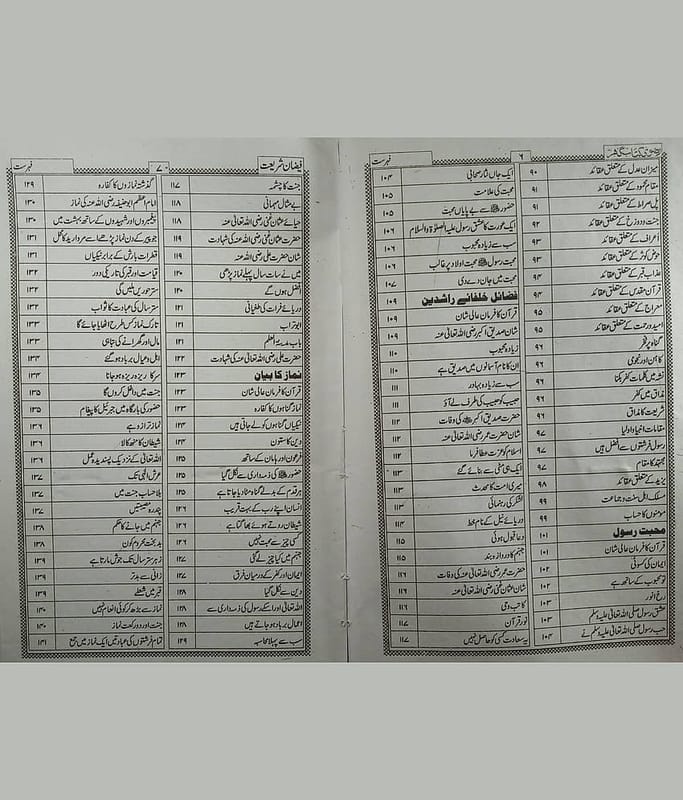 فہرست
۶
رضوی کتاب گھر
میزان عدل کے متعلق عقائد ۹۰
مقام محمود کے متعلق عقائد ۹۱
پل صراط کے متعلق عقائد ۹۱
جنت و دوزخ کے متعلق عقائد ۹۲
اعراف کے متعلق عقائد ۹۳
حوض کوثر کے متعلق عقائد ۹۳
عذاب قبر کے متعلق عقائد ۹۴
قرآن مقدس کے متعلق عقائد ۹۴
معراج کے متعلق عقائد ۹۵
امید و رحمت کے متعلق عقائد ۹۵
گناہ پر فخر ۹۶
کاہن اور نجومی ۹۶
نشہ میں کلمات کفر بکنا ۹۶
مذاق میں کفر ۹۶
شریعت کا مذاق ۹۶
مقامات انبیا و اولیا ۹۷
رسول فرشتوں سے افضل ہیں ۹۷
مجتہد کا مقام ۹۷
یزید کے متعلق عقائد ۹۸
مسلک اہل سنت و جماعت ۹۹
مومنوں کا حساب ۹۹
محبت رسول ۱۰۱
قرآن کا فرمان عالی شان ۱۰۱
ایمان کی کسوٹی ۱۰۲
تو محبوب کے ساتھ ہے ۱۰۲
رخ انور ۱۰۳
عشق رسول صلی اللہ تعالیٰ علیہ وسلم ۱۰۳
حب رسول صلی اللہ تعالیٰ علیہ وسلم نے ۱۰۴
ایک جاں نثار صحابی ۱۰۴
محبت کی علامت ۱۰۵
حضور ﷺ سے بے پایاں محبت ۱۰۵
ایک عورت کا عشق رسول علیہ الصلوٰۃ والسلام ۱۰۶
سب سے زیادہ محبوب ۱۰۶
محبت رسول ﷺ محبت اولاد پر غالب ۱۰۶
محبت میں جان دے دی ۱۰۷
فضائل خلفائے راشدین ۱۰۹
قرآن کا فرمان عالی شان ۱۰۹
شان صدیق اکبر رضی اللہ تعالیٰ عنہ ۱۰۹
زیادہ محبوب ۱۱۰
ان کا نام آسمانوں میں صدیق ہے ۱۱۰
سب سے زیادہ بہادر ۱۱۱
حبیب کو حبیب کی طرف لے آؤ ۱۱۱
حضرت صدیق اکبر کی وفات ۱۱۲
شان حضرت عمر رضی اللہ تعالیٰ عنہ ۱۱۲
اسلام کو عزت عطا فرما ۱۱۲
ایک ہی مٹی سے بنائے گئے ۱۱۳
میری امت کا محدث ۱۱۳
لشکر کی رہنمائی ۱۱۳
دریائے نیل کے نام خط ۱۱۴
دعا قبول ہوئی ۱۱۵
جہنم کا دروازہ بند ۱۱۵
حضرت عمر رضی اللہ تعالیٰ عنہ کی وفات ۱۱۶
شان عثمان غنی رضی اللہ تعالیٰ عنہ ۱۱۶
کاتب وحی ۱۱۶
نور قرآن ۱۱۷
یہ سعادت کسی کو حاصل نہیں ۱۱۷
فہرست
۷
فیضان شریعت
جنت کا چشمہ ۱۱۷
بے مثال مہمانی ۱۱۸
حیائے عثمان غنی رضی اللہ تعالیٰ عنہ ۱۱۸
حضرت عثمان غنی رضی اللہ عنہ کی شہادت ۱۱۹
شان حضرت علی رضی اللہ عنہ ۱۱۹
میں نے سات سال پہلے نماز پڑھی ۱۲۰
افضل ہوں گے ۱۲۰
دریائے فرات کی طغیانی ۱۲۱
ابو تراب ۱۲۱
باب مدینۃ العلم ۱۲۱
حضرت علی رضی اللہ تعالیٰ عنہ کی شہادت ۱۲۲
نماز کا بیان ۱۲۳
قرآن کا فرمان عالی شان ۱۲۳
نماز گناہوں کا کفارہ ۱۲۳
نیکیاں گناہوں کو لے جاتی ہیں ۱۲۴
دین کا ستون ۱۲۴
فرعون اور ہامان کے ساتھ ۱۲۵
حضور ﷺ کی ذمہ داری سے نکل گیا ۱۲۵
ہر قدم کے بدلے گناہ مٹا دیا جاتا ہے ۱۲۵
انسان اپنے رب کے بہت قریب ۱۲۶
شیطان روتے ہوئے بھاگتا ہے ۱۲۶
کسی چیز سے محبت نہیں ۱۲۶
جہنم میں کیا چیز لے گئی ۱۲۷
ایمان اور کفر کے درمیان فرق ۱۲۷
دین سے نکل گیا ۱۲۸
اللہ تعالیٰ اور اسکے رسول کی ذمہ داری سے ۱۲۸
اعمال برباد ہو جاتے ہیں ۱۲۸
سب سے پہلا محاسبہ ۱۲۹
گذشتہ نمازوں کا کفارہ ۱۲۹
امام اعظم ابو حنیفہ رضی اللہ عنہ کی نماز ۱۳۰
پیغمبروں اور شہیدوں کے ساتھ بہشت میں ۱۳۰
جو پیر کے دن نماز پڑھے اسے مروارید کا محل ۱۳۱
قطرات بارش کے برابر نیکیاں ۱۳۱
قیامت اور قبر کی تاریکی دور ۱۳۲
ستر حوریں ملیں گی ۱۳۲
ستر سال کی عبادت کا ثواب ۱۳۲
تارک نماز کس طرح اٹھایا جائے گا ۱۳۳
مال اور گھرانے کی تباہی ۱۳۳
اہل و عیال برباد ہو گئے ۱۳۴
سر کا ریزہ ریزہ ہو جانا ۱۳۴
جنت میں داخل کروں گا ۱۳۵
حضور کی بارگاہ میں جبرئیل کا پیغام ۱۳۵
نماز ترازو ہے ۱۳۶
شیطان کا منھ کالا ۱۳۶
اللہ تعالیٰ کے نزدیک پسندیدہ عمل ۱۳۶
عرش الٰہی تک ۱۳۷
بلا حساب جنت میں ۱۳۷
پندرہ مصیبتیں ۱۳۷
جہنم میں جانے کا حکم ۱۳۸
بدبخت محروم کون ۱۳۸
زہر ستر سال تک جوش مارتا ہے ۱۳۹
زانی سے بدتر ۱۳۹
قبر میں شعلے ۱۳۹
نماز سے بڑھ کر کوئی انعام نہیں ۱۴۰
جنت اور دو رکعت نماز ۱۴۰
تمام فرشتوں کی عبادتیں ایک نماز میں جمع ۱۴۱